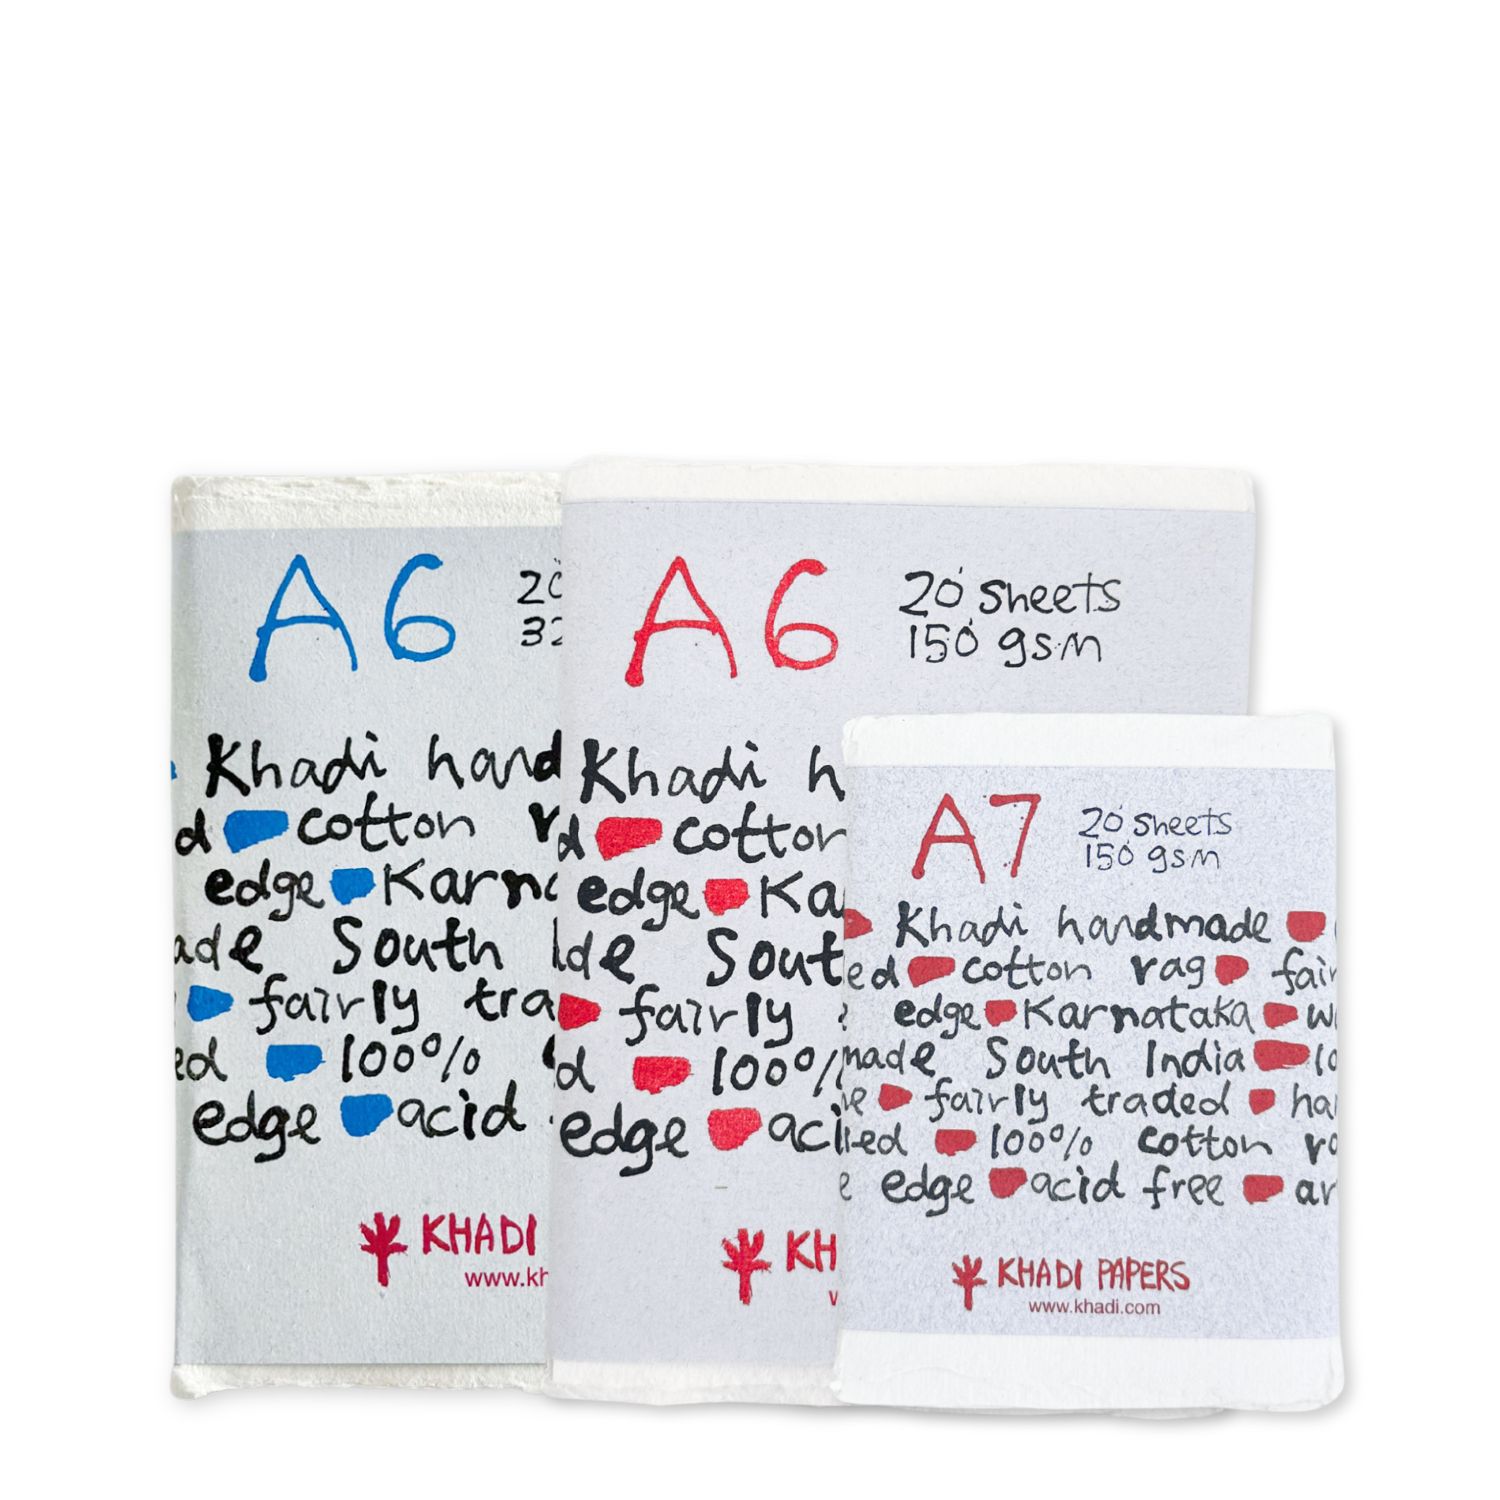 A6
Khadi
cotton
edge Karn
South
fairly tra
100%
edge acid
KHADI
A6
20 sheets
150 gsm
Khadi h
cotton
edge Ka
South
fairly
100%
edge
A7
20 sheets
150 gsm
Khadi handmade
cotton rag
edge Karnataka
made South India
fairly traded
100% cotton
edge acid free
KHADI PAPERS
www.khadi.com